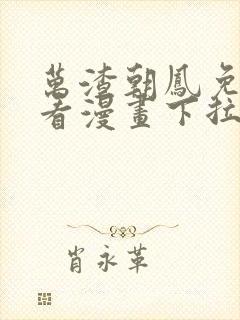 萬渣朝鳳免
看漫畫下拉
肖永革